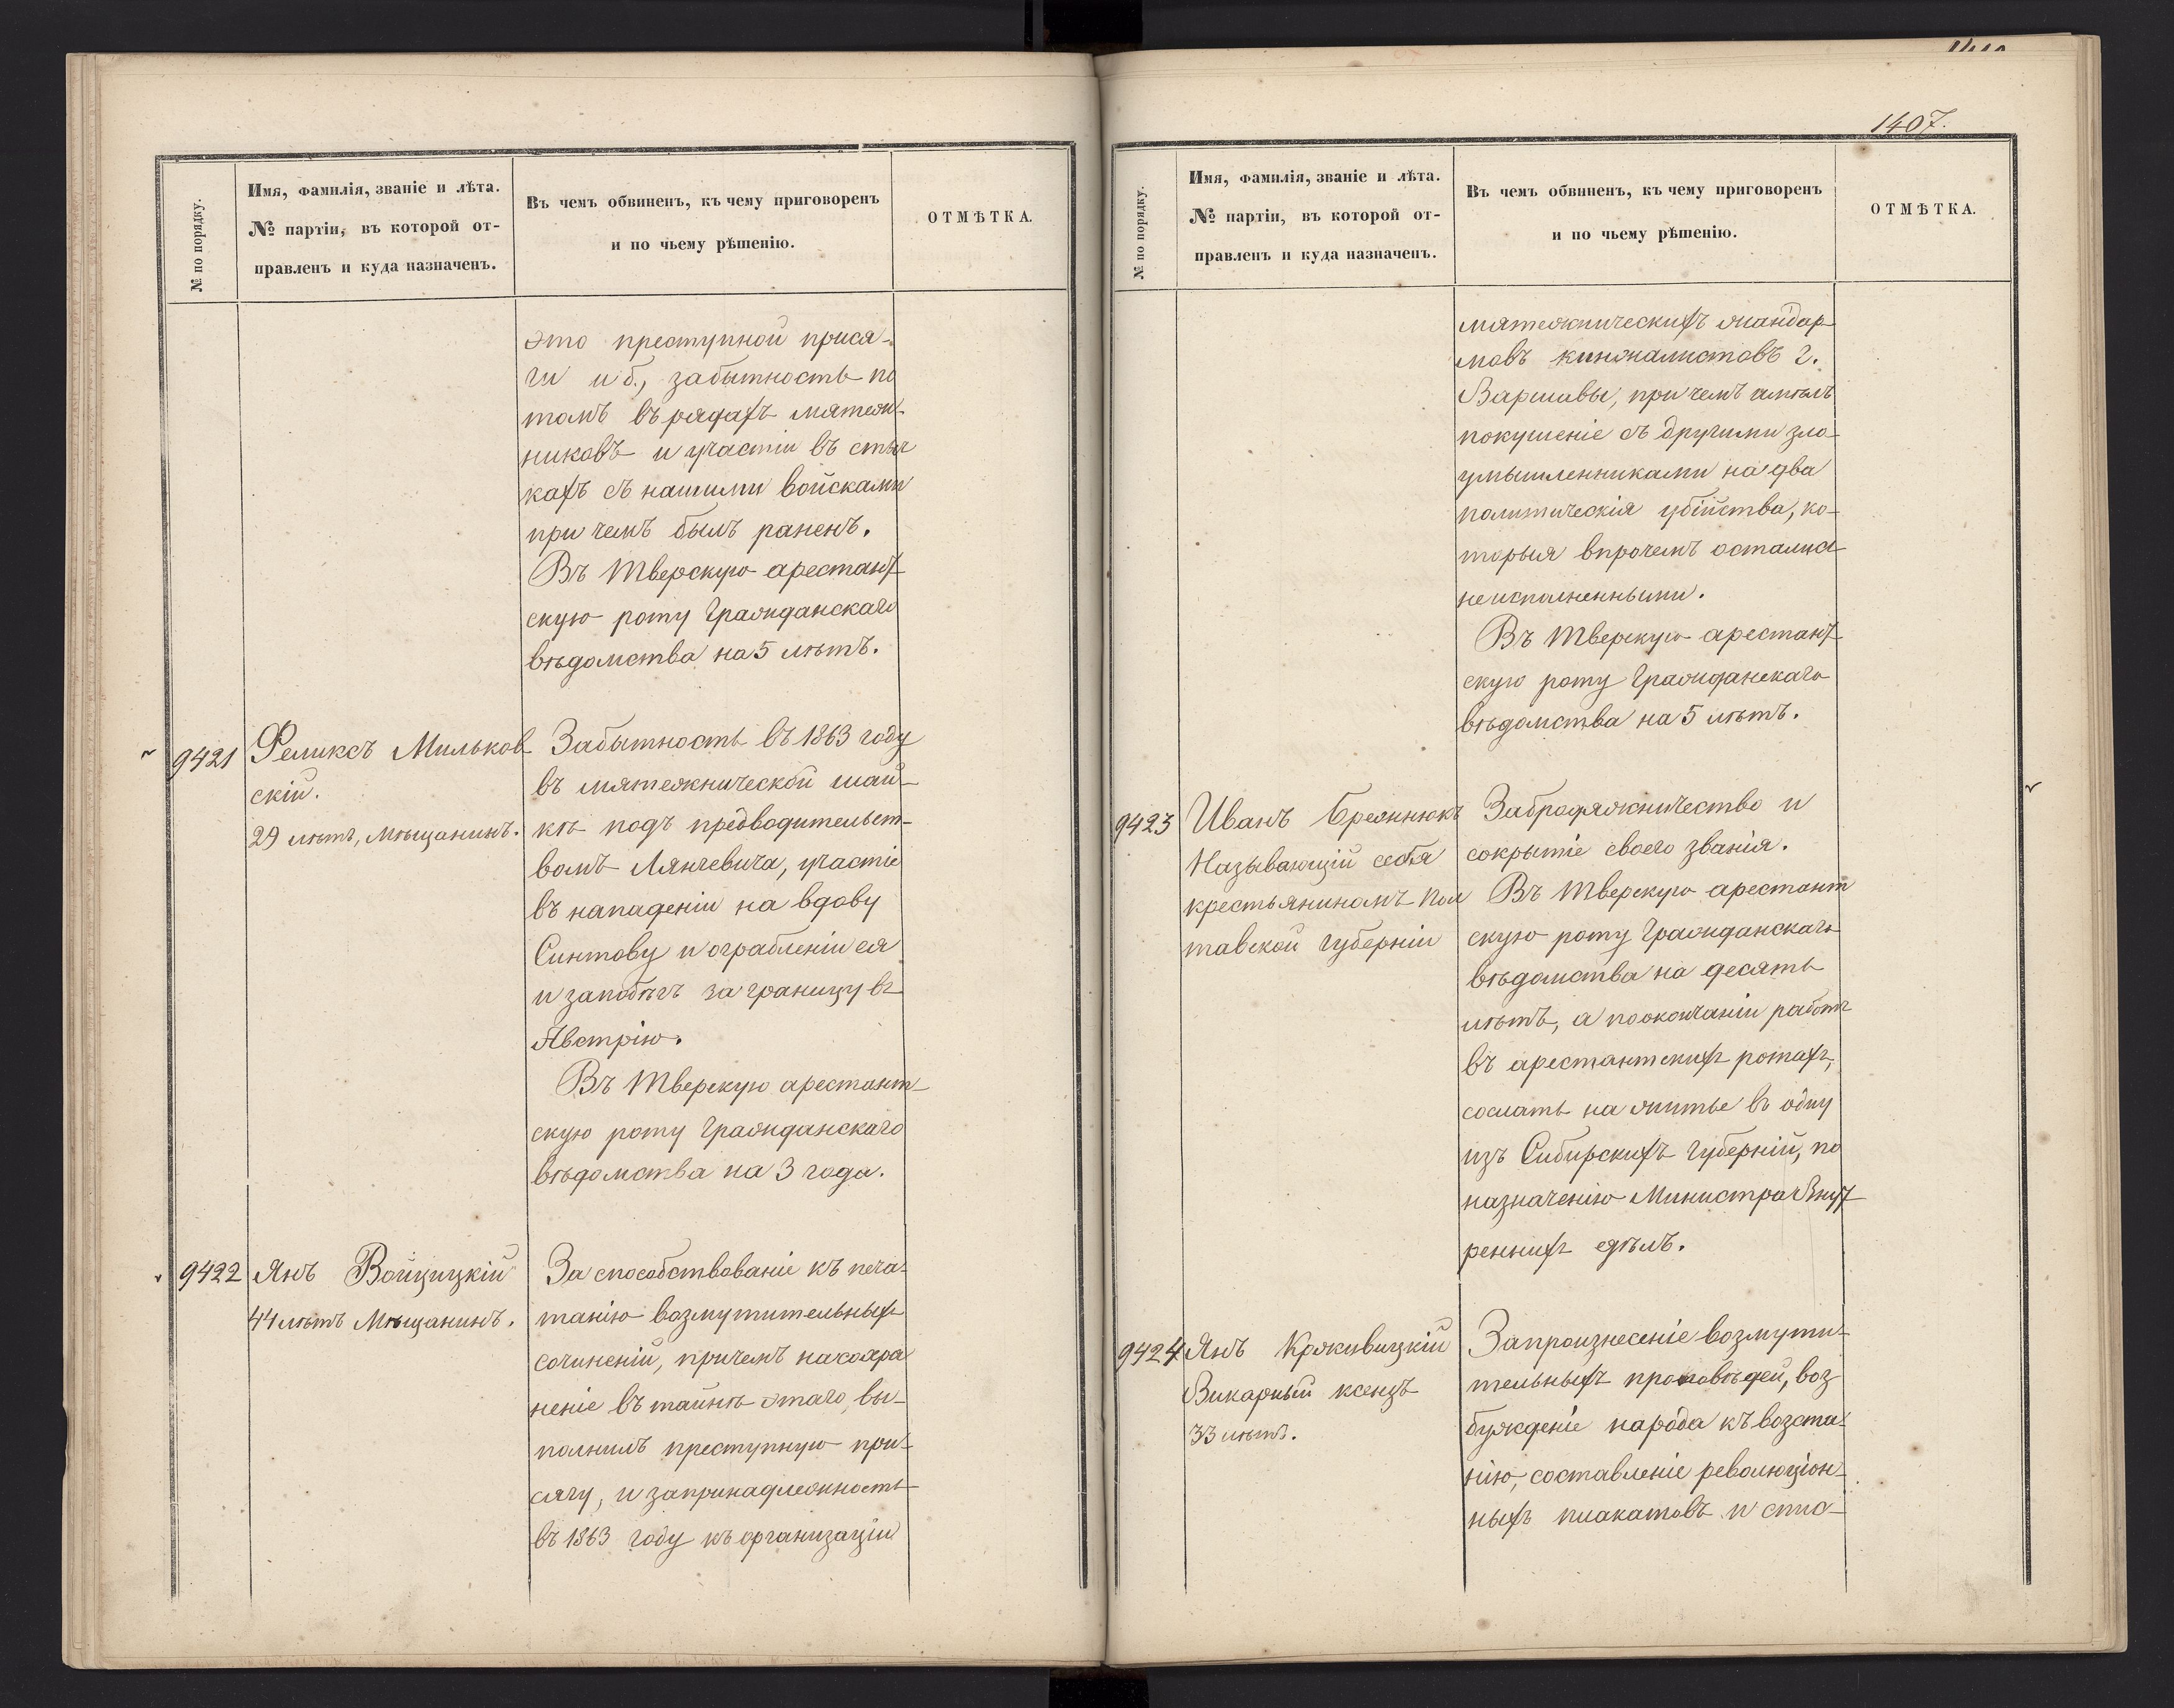 № по порядку.
Имя, фамилія, званіе и лѣта.
№ партіи, въ которой от-
правленъ и куда назначенъ.
Въ чемъ обвиненъ, къ чему приговоренъ
и по чьему рѣшенію.
ОТМѢТКА.
это преступной прися-
ги и б., забытность по
томъ въ рядахъ мятеж-
никовъ и участіи въ стыч
кахъ съ нашими войсками
при чемъ былъ раненъ.
Въ Тверскую арестант
скую роту Гражданскаго
вѣдомства на 5 лѣтъ.
9421
Феликсъ Мильков
скій.
29 лѣтъ, мѣщанинъ.
Забытность въ 1863 году
въ мятежнической шай-
кѣ подъ предводительст-
вомъ Лянгевича, участіе
въ нападеніи на вдову
Синтову и ограбленіи ея
и запобѣгъ за границу въ
Австрію.
Въ Тверскую арестант-
скую роту Гражданскаго
вѣдомства на 3 года.
9422
Янъ Войцицкій
44 лѣтъ Мѣщанинъ.
За способствованіе къ печа-
танію возмутительныхъ
сочиненій, причемъ на сохра
неніе въ тайнѣ этаго, вы-
полнилъ преступную при-
сягу, и запринадлежность
въ 1863 году къ организаціи
1407.
№ по порядку.
Имя, фамилія, званіе и лѣта.
№ партіи, въ которой от-
правленъ и куда назначенъ.
Въ чемъ обвиненъ, къ чему приговоренъ
и по чьему рѣшенію.
ОТМѢТКА.
мятежническихъ жандар-
мовъ кинжалистовъ г.
Варшавы, при чемъ имѣлъ
покушеніе съ другими зло-
умышленниками на два
политическія убійства, ко-
торыя впрочемъ остались
неисполненными.
Въ Тверскую арестант
скую роту Гражданскаго
вѣдомства на 5 лѣтъ.
9423
Иванъ Брежнюкъ
Называющій себя
крестьяниномъ Пол
тавской губерніи
Забродяжничество и
сокрытіе своего званія.
Въ Тверскую арестант
скую роту Гражданскаго
вѣдомства на десять
лѣтъ, а поокончаніи работъ
въ арестантскихъ ротахъ,
сослать на житье въ одну
изъ Сибирскихъ губерній, по
назначенію Министра Внут
реннихъ дѣлъ.
9424
Янъ
Викарный ксендзъ
33 лѣтъ.
Запроизнесеніе возмути-
тельныхъ проповѣдей, воз
бужденіе народа къ возста-
нію, составленіе революціон
ныхъ плакатовъ и спис-